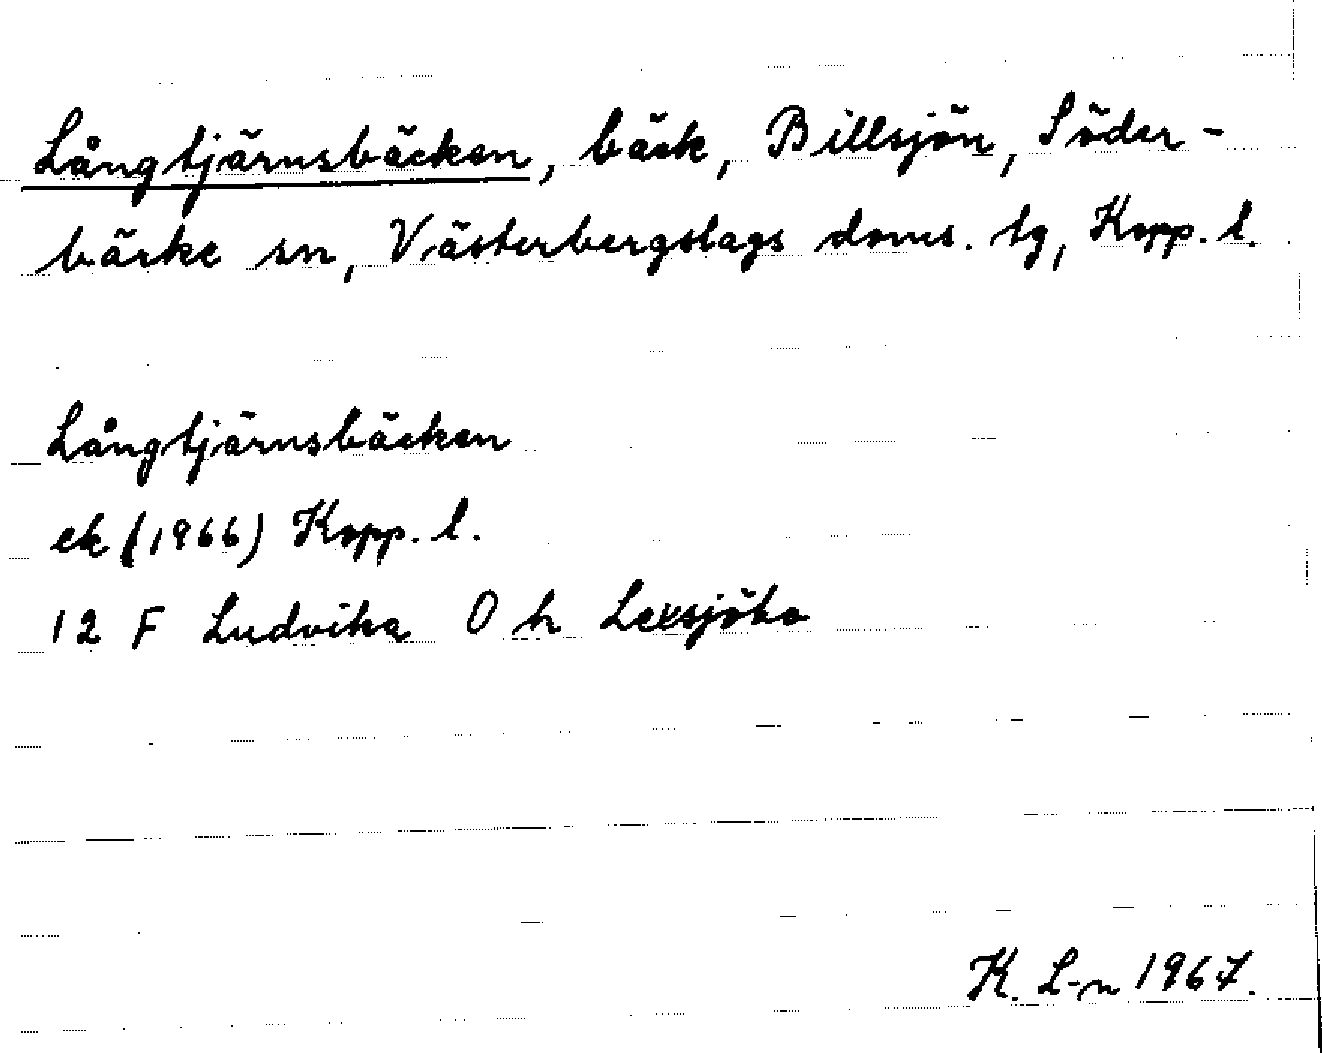 Långtjärnsbäcken, bäck, Billsjön, Söder-
bärke sn, Västerbergslags doms. tg, Kopp. l.
Långtjärnsbäcken
ek (1966) Kopp. l.
12 F Ludvika O h
K. L-n 1967.